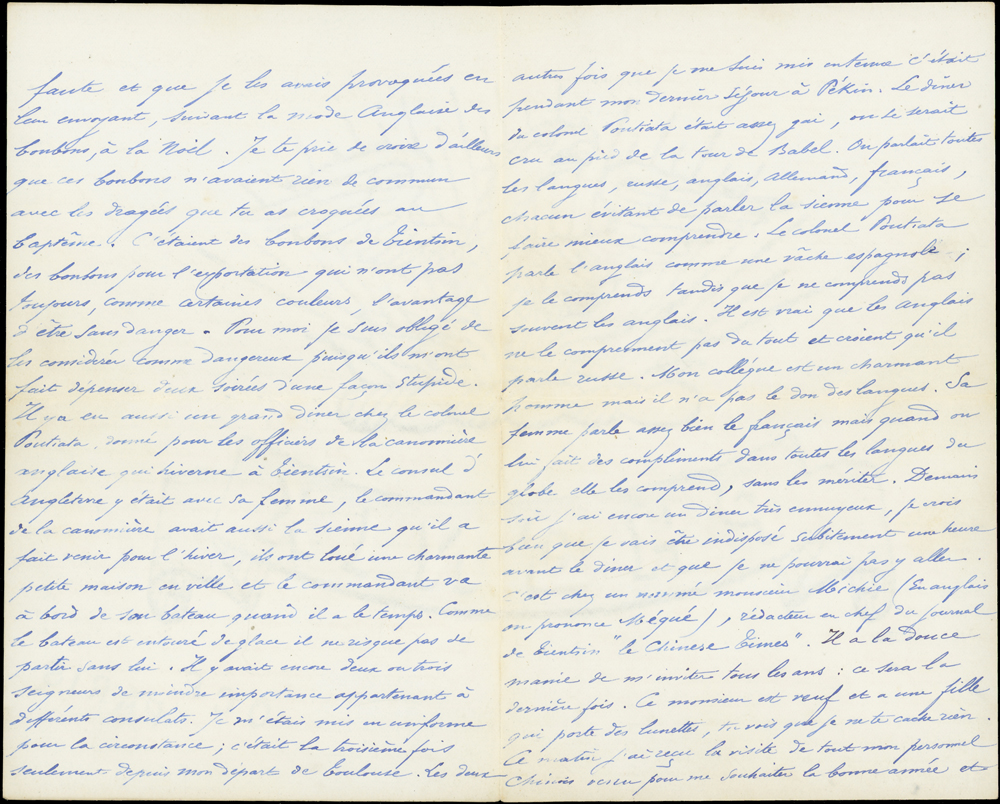 faute et que je les avais provoquées en
leur envoyant, suivant la mode Anglaise des
bonbons, à la Noël. Je te prie de croire d'ailleurs
que ces bonbons n'avaient rien de commun
avec les dragées que tu as croquées au
baptême. C'étaient des bonbons de Tientsin,
des bonbons pour l'exportation qui n'ont pas
toujours, comme certaines couleurs, l'avantage
d'être sans danger. Pour moi je suis obligé de
les considérer comme dangereux puisqu'ils m'ont
fait dépenser deux soirées d'une façon stupide.
Il y a eu aussi un grand dîner chez le colonel
Poutiata, donné pour les officiers de la canonnière
anglaise qui hiverne à Tientsin. Le consul d'
Angleterre y était avec sa femme, le commandant
de la canonnière avait aussi la sienne qu'il a
fait venir pour l'hiver, ils ont loué une charmante
petite maison en ville et le commandant va
à bord de son bateau quand il a le temps. Comme
le bateau est entouré de glace il ne risque pas de
partir sans lui. Il y avait encore deux ou trois
seigneurs de moindre importance appartenant à
différents consulats. Je m'étais mis en uniforme
pour la circonstance ; c'était la troisième fois
seulement depuis mon départ de Toulouse. Les deux
autres fois que je me suis mis en tenue c'était
pendant mon dernier séjour à Pékin. Le dîner
du colonel Poutiata était assez gai, on se serait
cru au pied de la tour de Babel. On parlait toutes
les langues, russe, anglais, allemand, français,
chacun évitant de parler la sienne pour se
faire mieux comprendre. Le colonel Poutiata
parle l'anglais comme une vâche espagnole ;
je le comprends tandis que je ne comprends pas
souvent les anglais. Il est vrai que les Anglais
ne le comprennent pas du tout et croient qu'il
parle russe. Mon collégue est un charmant
homme mais il n'a pas le don des langues. Sa
femme parle assez bien le français mais quand on
lui fait des compliments dans toutes les langues du
globe elle les comprend, sans les mériter. Demain
soir j'ai encore un dîner très ennuyeux, je crois
bien que je vais être indisposé subitement une heure
avant le dîner et que je ne pourrai pas y aller.
C'est chez un nommé monsieur Michie (En anglais
on prononce Mégué), rédacteur en chef du Journal
de Tientsin "le Chinese Times". Il a la douce
manie de m'inviter tous les ans : ce sera la
dernière fois. Ce monsieur est veuf et a une fille
qui porte des lunettes, tu vois que je ne te cache rien.
Ce matin j'ai reçu la visite de tout mon personnel
chinois venu pour me souhaiter la bonne année et